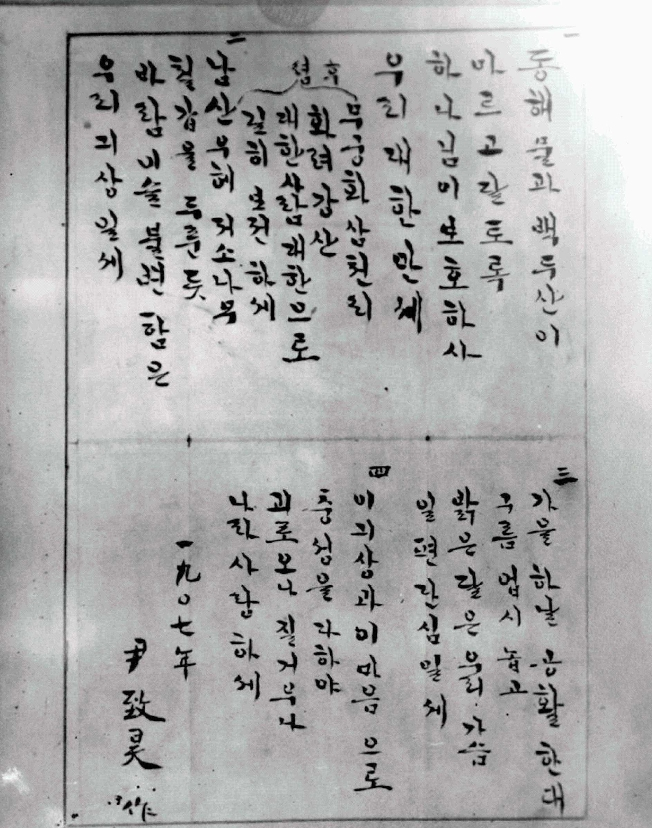 一
동해물과 백두산이
마르고 달토록
하나님이 보호하사
우리 대한만세
후렴
무궁화 삼천리
화려강산
대한사람 대한으로
길히 보전하세
二
남산우헤 저소나무
철갑을 두룬듯
바람이슬 불변함은
우리 긔상일세
三
가을하날 공활한대
구름업시 놉고
밝은달은 우리가슴
일편단심일세
四
이긔상과 이마음으로
충성을 다하야
괴로오나 질거우나
나라사랑하세
一九〇七年
尹致昊